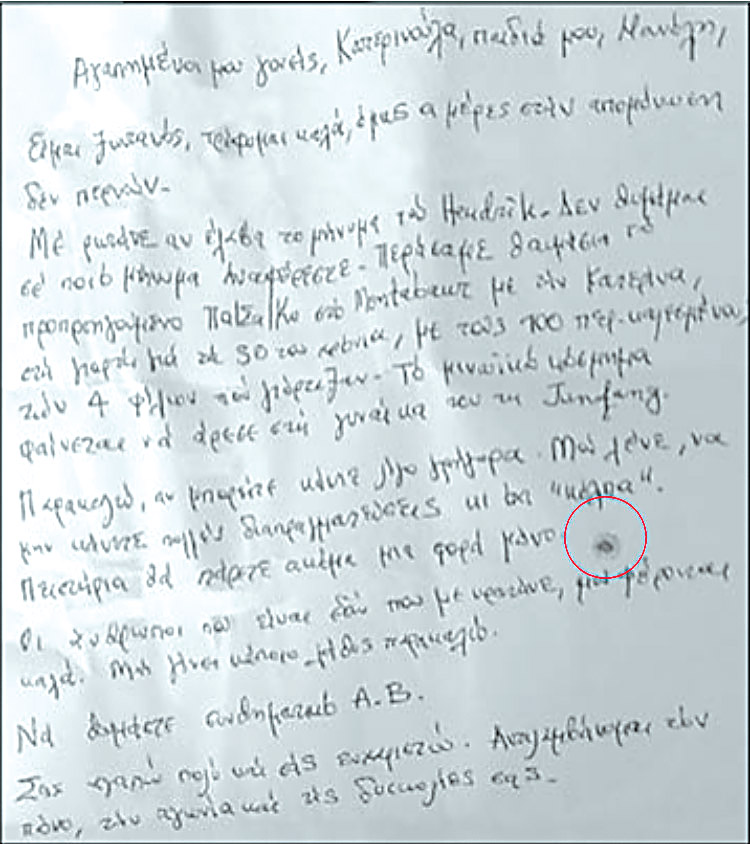 Αγαπημένοι μου γονείς, Κατερινούλα, παιδιά μου, Μανώλη,
Είμαι ζωντανός, τρέφομαι καλά, όμως οι μέρες στην απομόνωση
δεν περνούν.
Με ρωτάνε αν έλαβα το μήνυμα του Hendrik. Δεν θυμάμαι
σε ποιό μήνυμα αναφέρεστε. Περάσαμε θαυμάσια το
προπροηγούμενο Πάσχα/Κο στο Montabaur με την Κατερίνα,
στη γιορτή για τα 50 του χρόνια, με τους 100 περ. καλεσμένους,
των 4 φίλων που γιόρταζαν. Το μινωϊκό κόσμημα
φαίνεται να άρεσε στη γυναίκα του τη Junfang.
Παρακαλώ, αν μπορείτε κάντε λίγο γρήγορα. Μου λένε, να
μην κάνετε πολλές διαπραγματεύσεις κι θα "κόλπα".
Πειστήρια θα πάρετε ακόμα μια φορά μόνο.
Οι άνθρωποι που είναι εδώ που με κρατάνε, μου φέρονται
καλά. Μην γίνει κάποιο λάθος παρακαλώ.
Να θυμάστε συνθηματικό Α.Β.
Σας αγαπώ πολύ και σας ευχαριστώ. Αντιλαμβάνομαι τον
πόνο, την αγωνία και τις δυσκολίες σας.